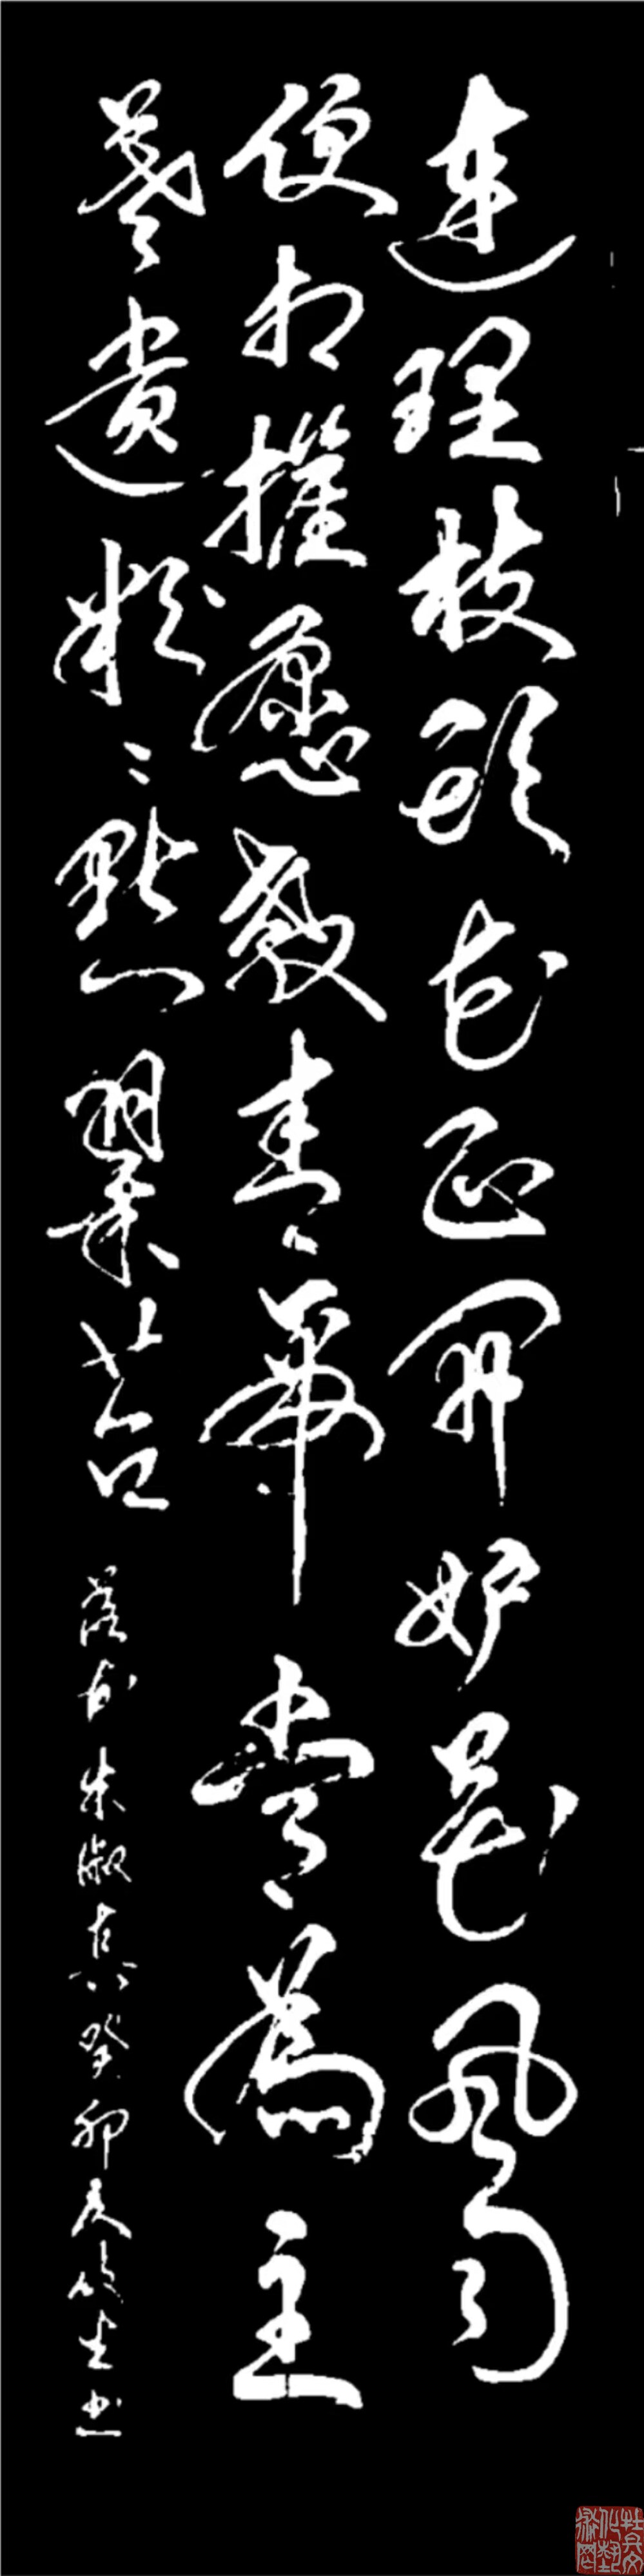 連理枝頭花正開妒花風雨
便相摧愿教青帝常為主
莫遣紛紛點翠苔 落花 朱淑真 癸卯夏 生书